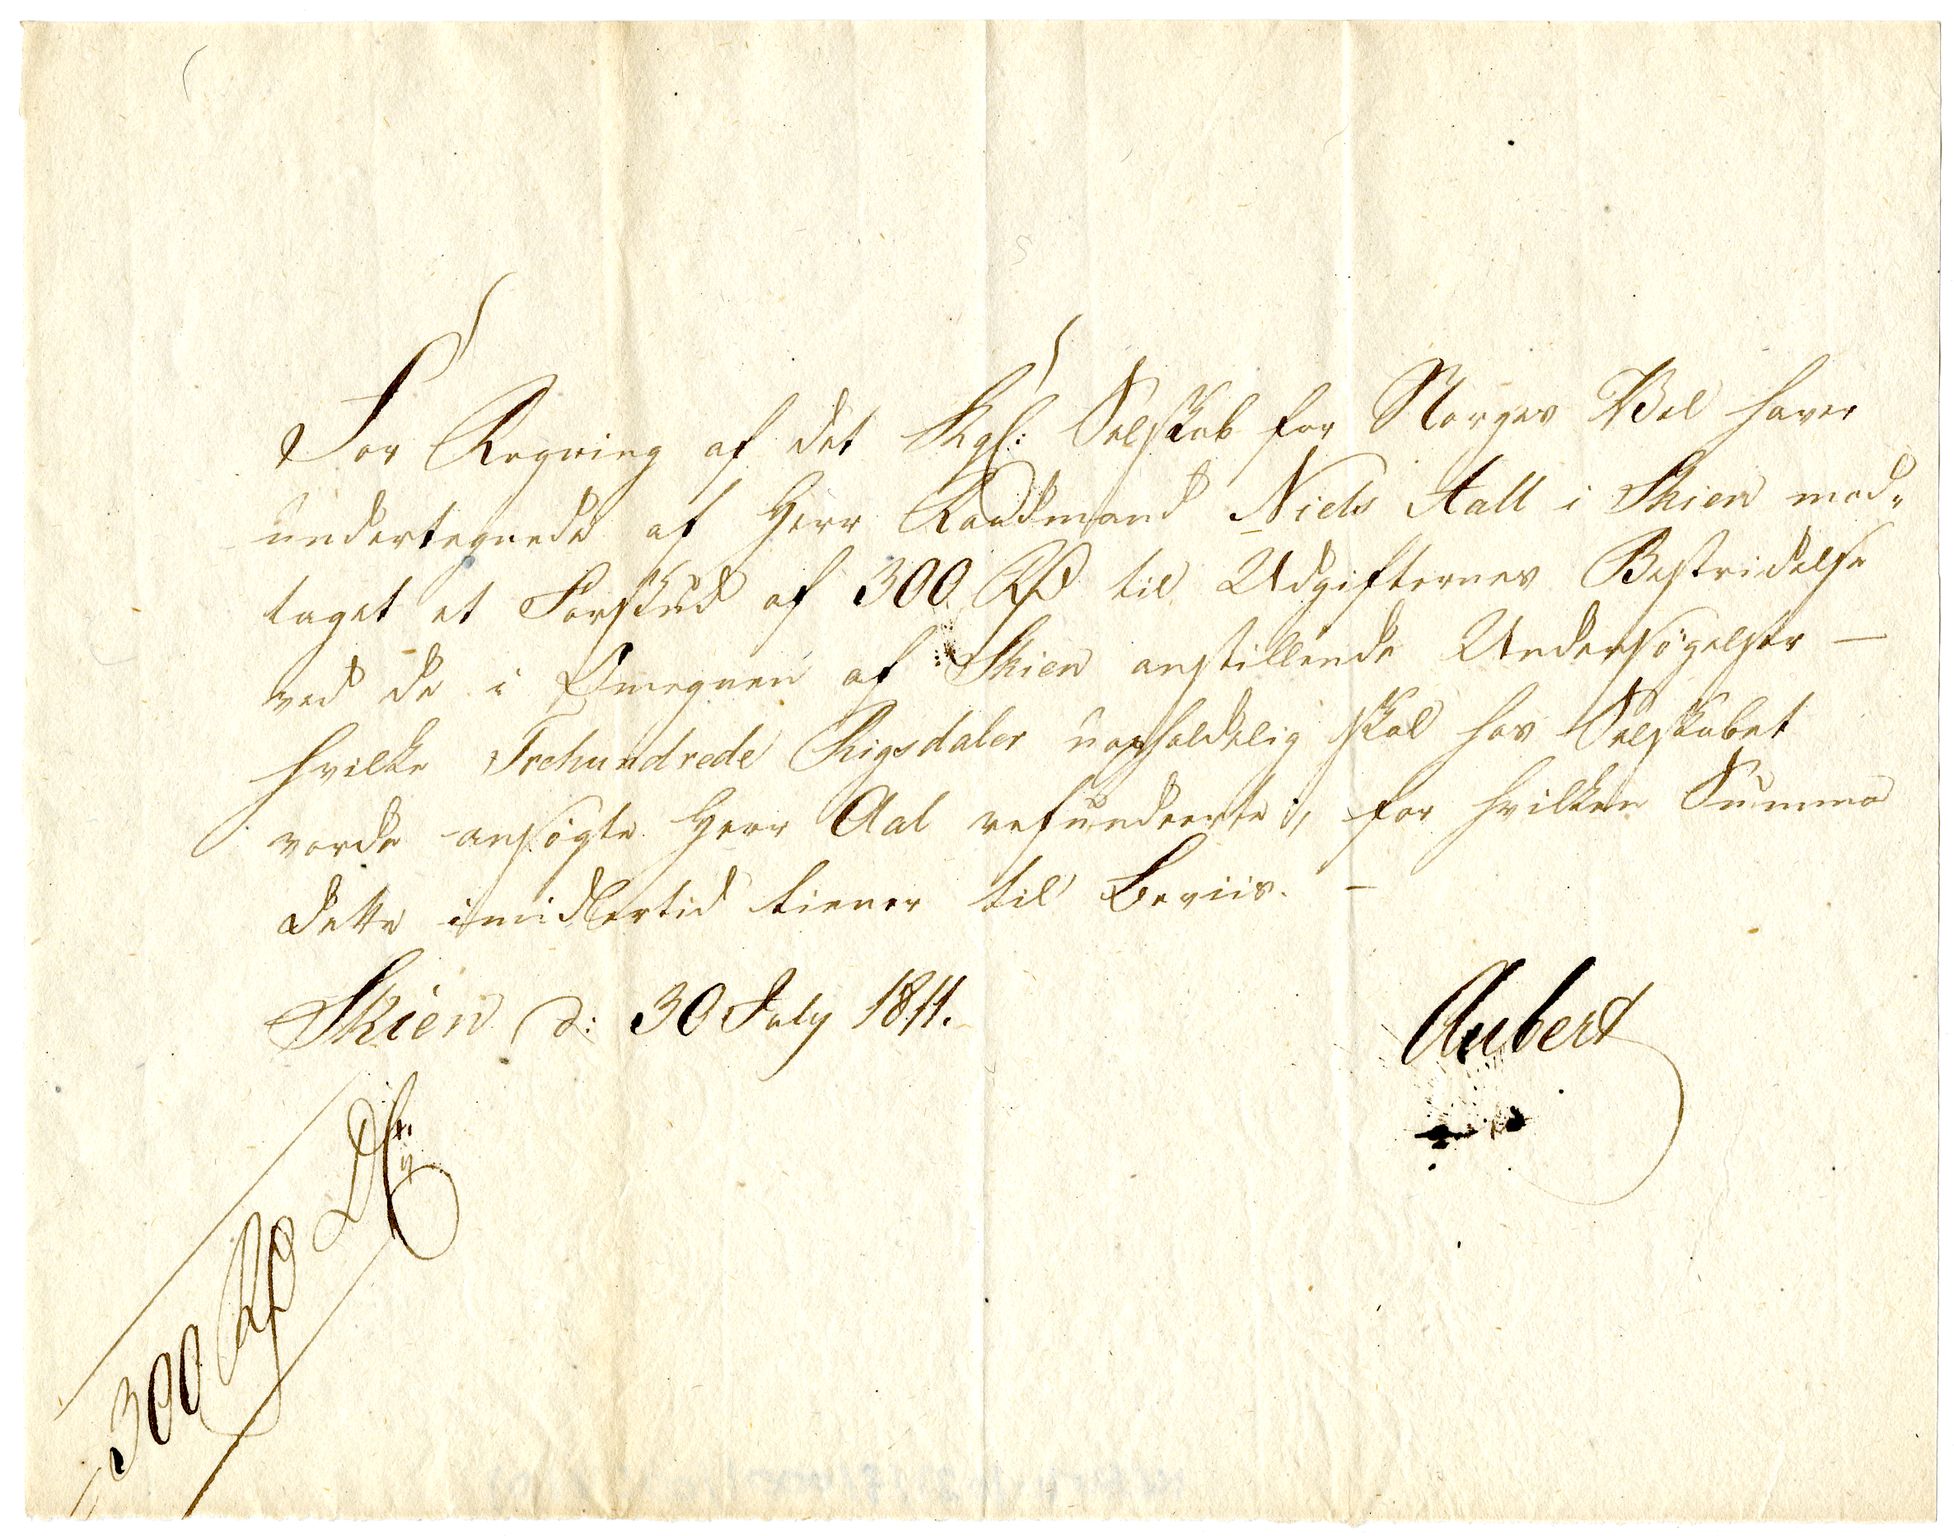 For Regning af det Kgl: Selskab for Norges Vel haver
undertegnede af Herr Raadmand Niels Aall i Skien mod„
taget et Forskud af 300 Rd til Udgifternes Bestridelse
ved de i Omegnen af Skien anstillende Undersögelser —
hvilke Trehundrede Rigsdaler uopholdelig skal hos Selskabet
vorde ansögte Herr Aal refunderte, for hvilken Summa
dette imidlertid tiener til Beviis. —
Skien d: 30 July 1811.
Aubert
300 Rd